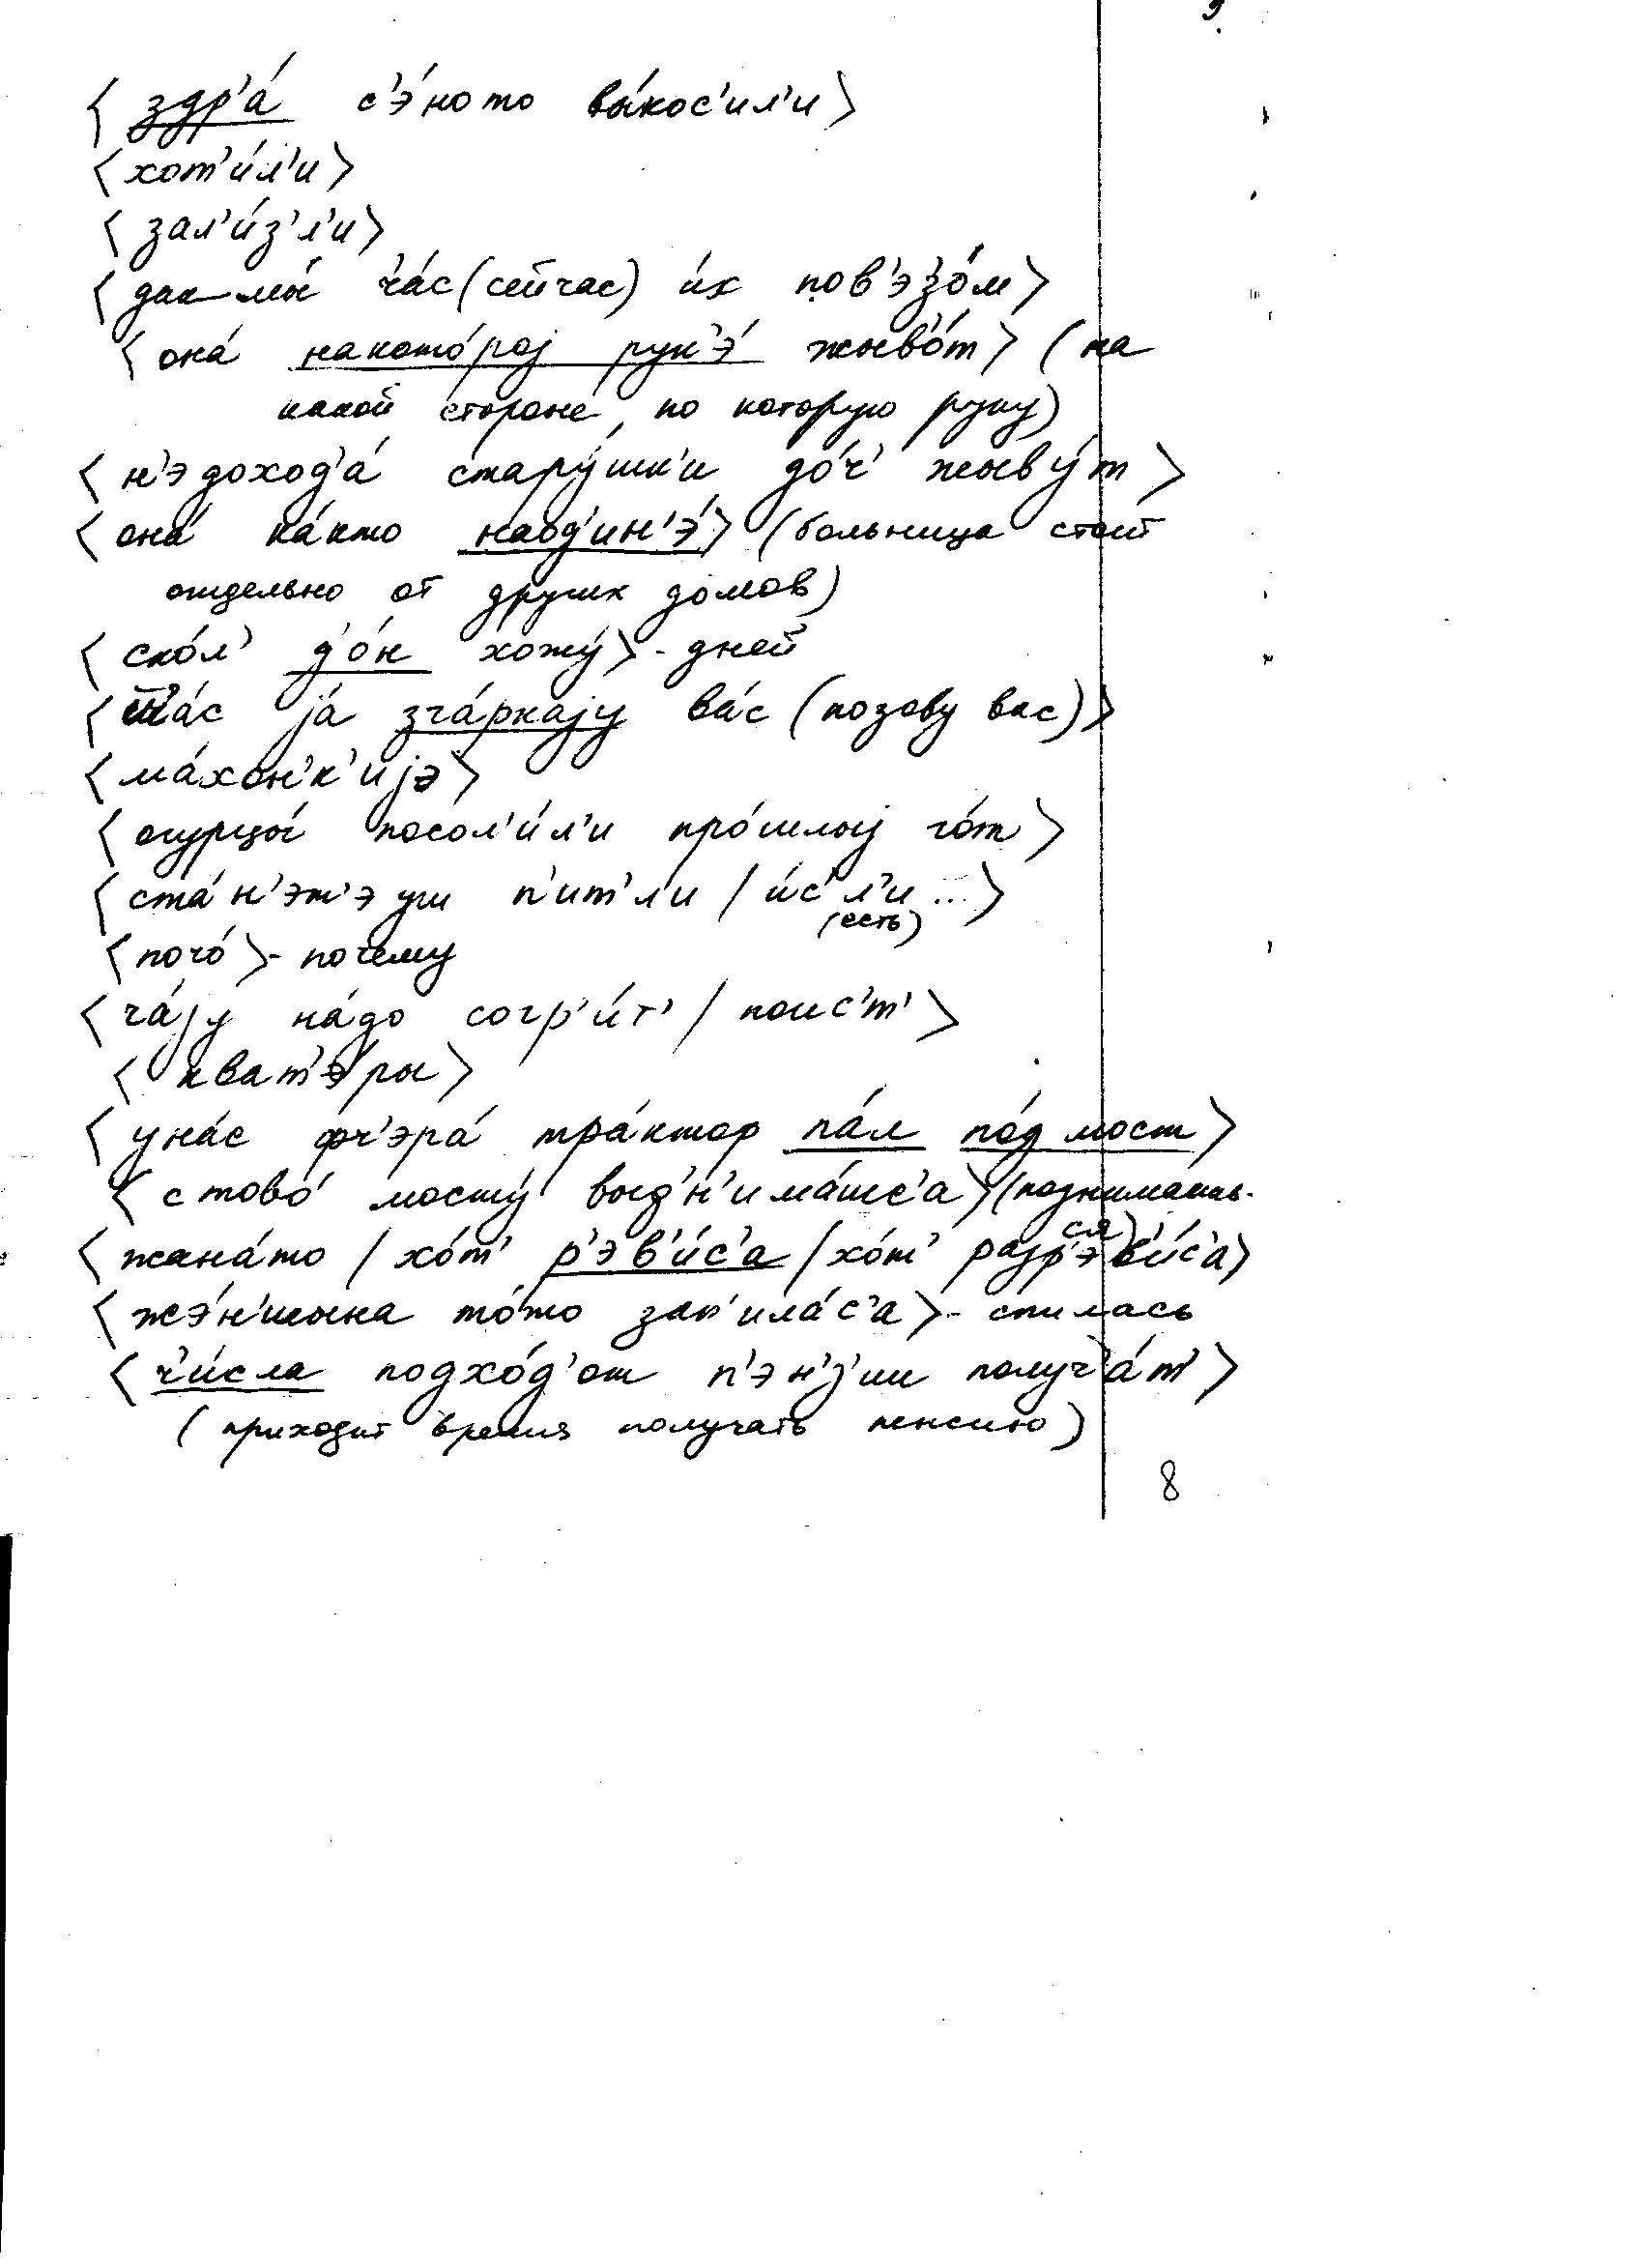 ⟨здр'á с'э́ното вы́кос'ил'и⟩
⟨хот'и́л'и⟩
⟨зал'и́з'л'и⟩
⟨дак мы́ ча́с (сейчас) и́х пов'эзо́м⟩
⟨она́ накото́рој рук'э́ жыво́т⟩ (на
какой стороне, по которую руку)
⟨н'эдоход'а́ стару́шк'и до́ч' жыву́т⟩
⟨она́ ка́кто наод'ин'э́⟩ (больница стоит
отдельно от других домов)
⟨ско́л' до́н хожу́⟩ - дней
ја́ зга́ркају ва́с (позову вас)⟩
⟨ма́хон'к'ијэ⟩
⟨огурцы́ посол'и́л'и про́шлыј го́т⟩
⟨ста́н'эт'э уш п'ит'ли / и́с'л'и ...⟩
(есть)
⟨почо́⟩ - почему
⟨ча́ју на́до согр'и́т' / поис'т'⟩
⟨кват'э́ры⟩
⟨уна́с фч'эра́ тра́ктор па́л по́д мост⟩
⟨с тово́ мосту́ выд'н'има́тс'а⟩ (поднимать-
ся)
⟨жана́то / хо́т' р'эв'и́с'а / хо́т' разр'эв'и́с'а⟩
⟨жэ́н'шына то́то зап'ила́с'а⟩ - спилась
⟨ч'и́сла подхо́д'от п'эн'з'ии получ'а́т'⟩
(приходит время получать пенсию)
8